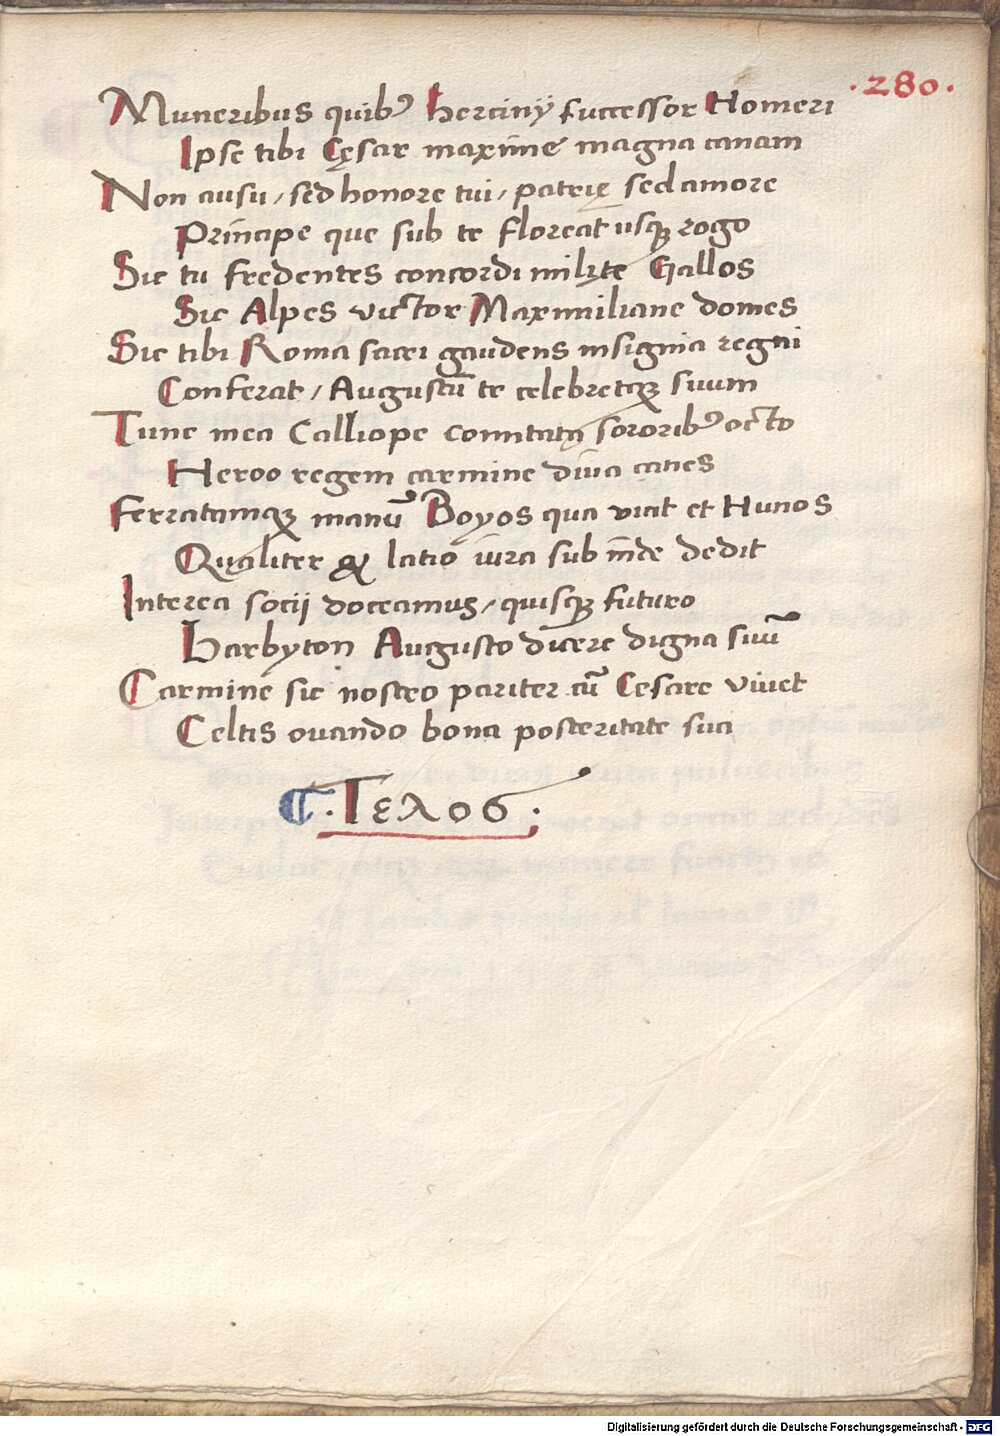 ·280·
Muneribus quibꝰ hercinij successor Homeri
Ipse tibi Cęsar maxime magna canam
Non ausu / sed honore tui / patrię sed amore
Principe que sub te floreat usqꝫ rogo
Sic tu fredentes concordi milite Gallos
Sic Alpes victor Maxmiliane domes
Sic tibi Roma sacri gaudens insignia regni
Conferat / Augustū te celebretqꝫ suum
Tunc mea Calliope comitata sororibꝰ octo
Heroo regem carmine diua canes
Ferratamqꝫ manū Boyos qua vicit et Hunos
Qualiter & latio iura sub inde dedit
Interea socij doceamus / quisqꝫ futuro
Barbyton Augusto dicere digna suū
Carmine sic nostro pariter cū Cesare viuet
Celtis ouando bona posteritate sua
·Τελος·
Digitalisierung gefördert durch die Deutsche Forschungsgemeinschaft - DFG